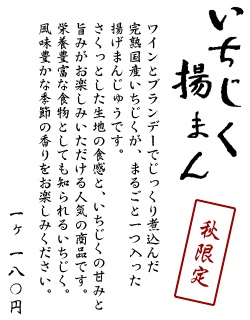 いちじく
揚まん
秋限定
ワインとブランデーでじっくり煮込んだ
完熟国産いちじくが、まるごと一つ入った
揚げまんじゅうです。
さくっとした生地の食感と、いちじくの甘みと
旨みがお楽しみいただける人気の商品です。
栄養豊富な食物としても知られるいちじく。
風味豊かな季節の香りをお楽しみください。
一ヶ 一八〇円